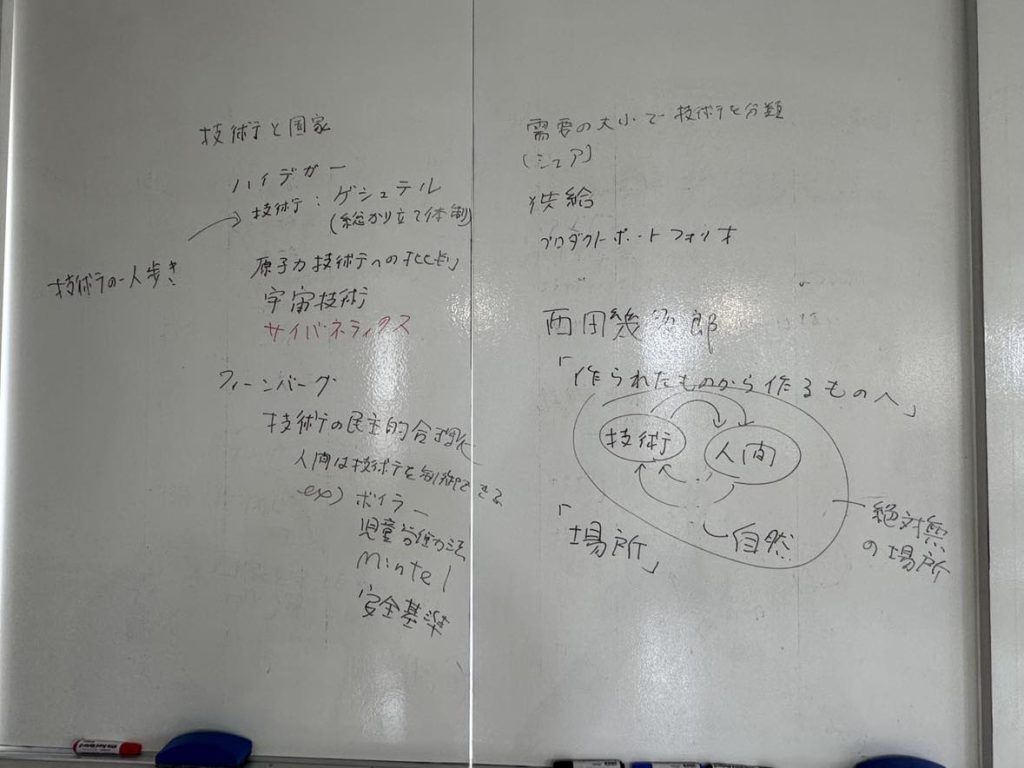 技術と国家
ハイデガー
技術：ゲシュテル
(総かり立て体制)
技術の一人歩き
原子力技術への
宇宙技術
サイバネティクス
フィーンバーグ
技術の民主的合理化
人間は技術を制御できる
ex) ボイラー
児童労働力法
Mintel
安全基準
需要の大小で技術を分類
(シェア)
供給
プロダクトポートフォリオ
西田幾多郎
「作られたものから作るものへ」
技術
人間
自然
「場所」
絶対無
の場所